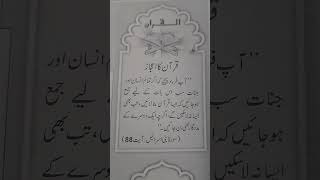 القرآن
قرآن کا اعجاز
’’آپ فرما دیجیے کہ اگر تمام انسان اور
جنات سب اس بات کے لیے جمع
ہو جائیں کہ ایسا قرآن بنا لائیں، تب بھی
ایسا نہ لا سکیں گے، اگرچہ ایک دوسرے کے
مددگار بھی بن جائیں، تب بھی
ایسا نہ لا سکیں
(سورۃ بنی اسرائیل: آیت 88)